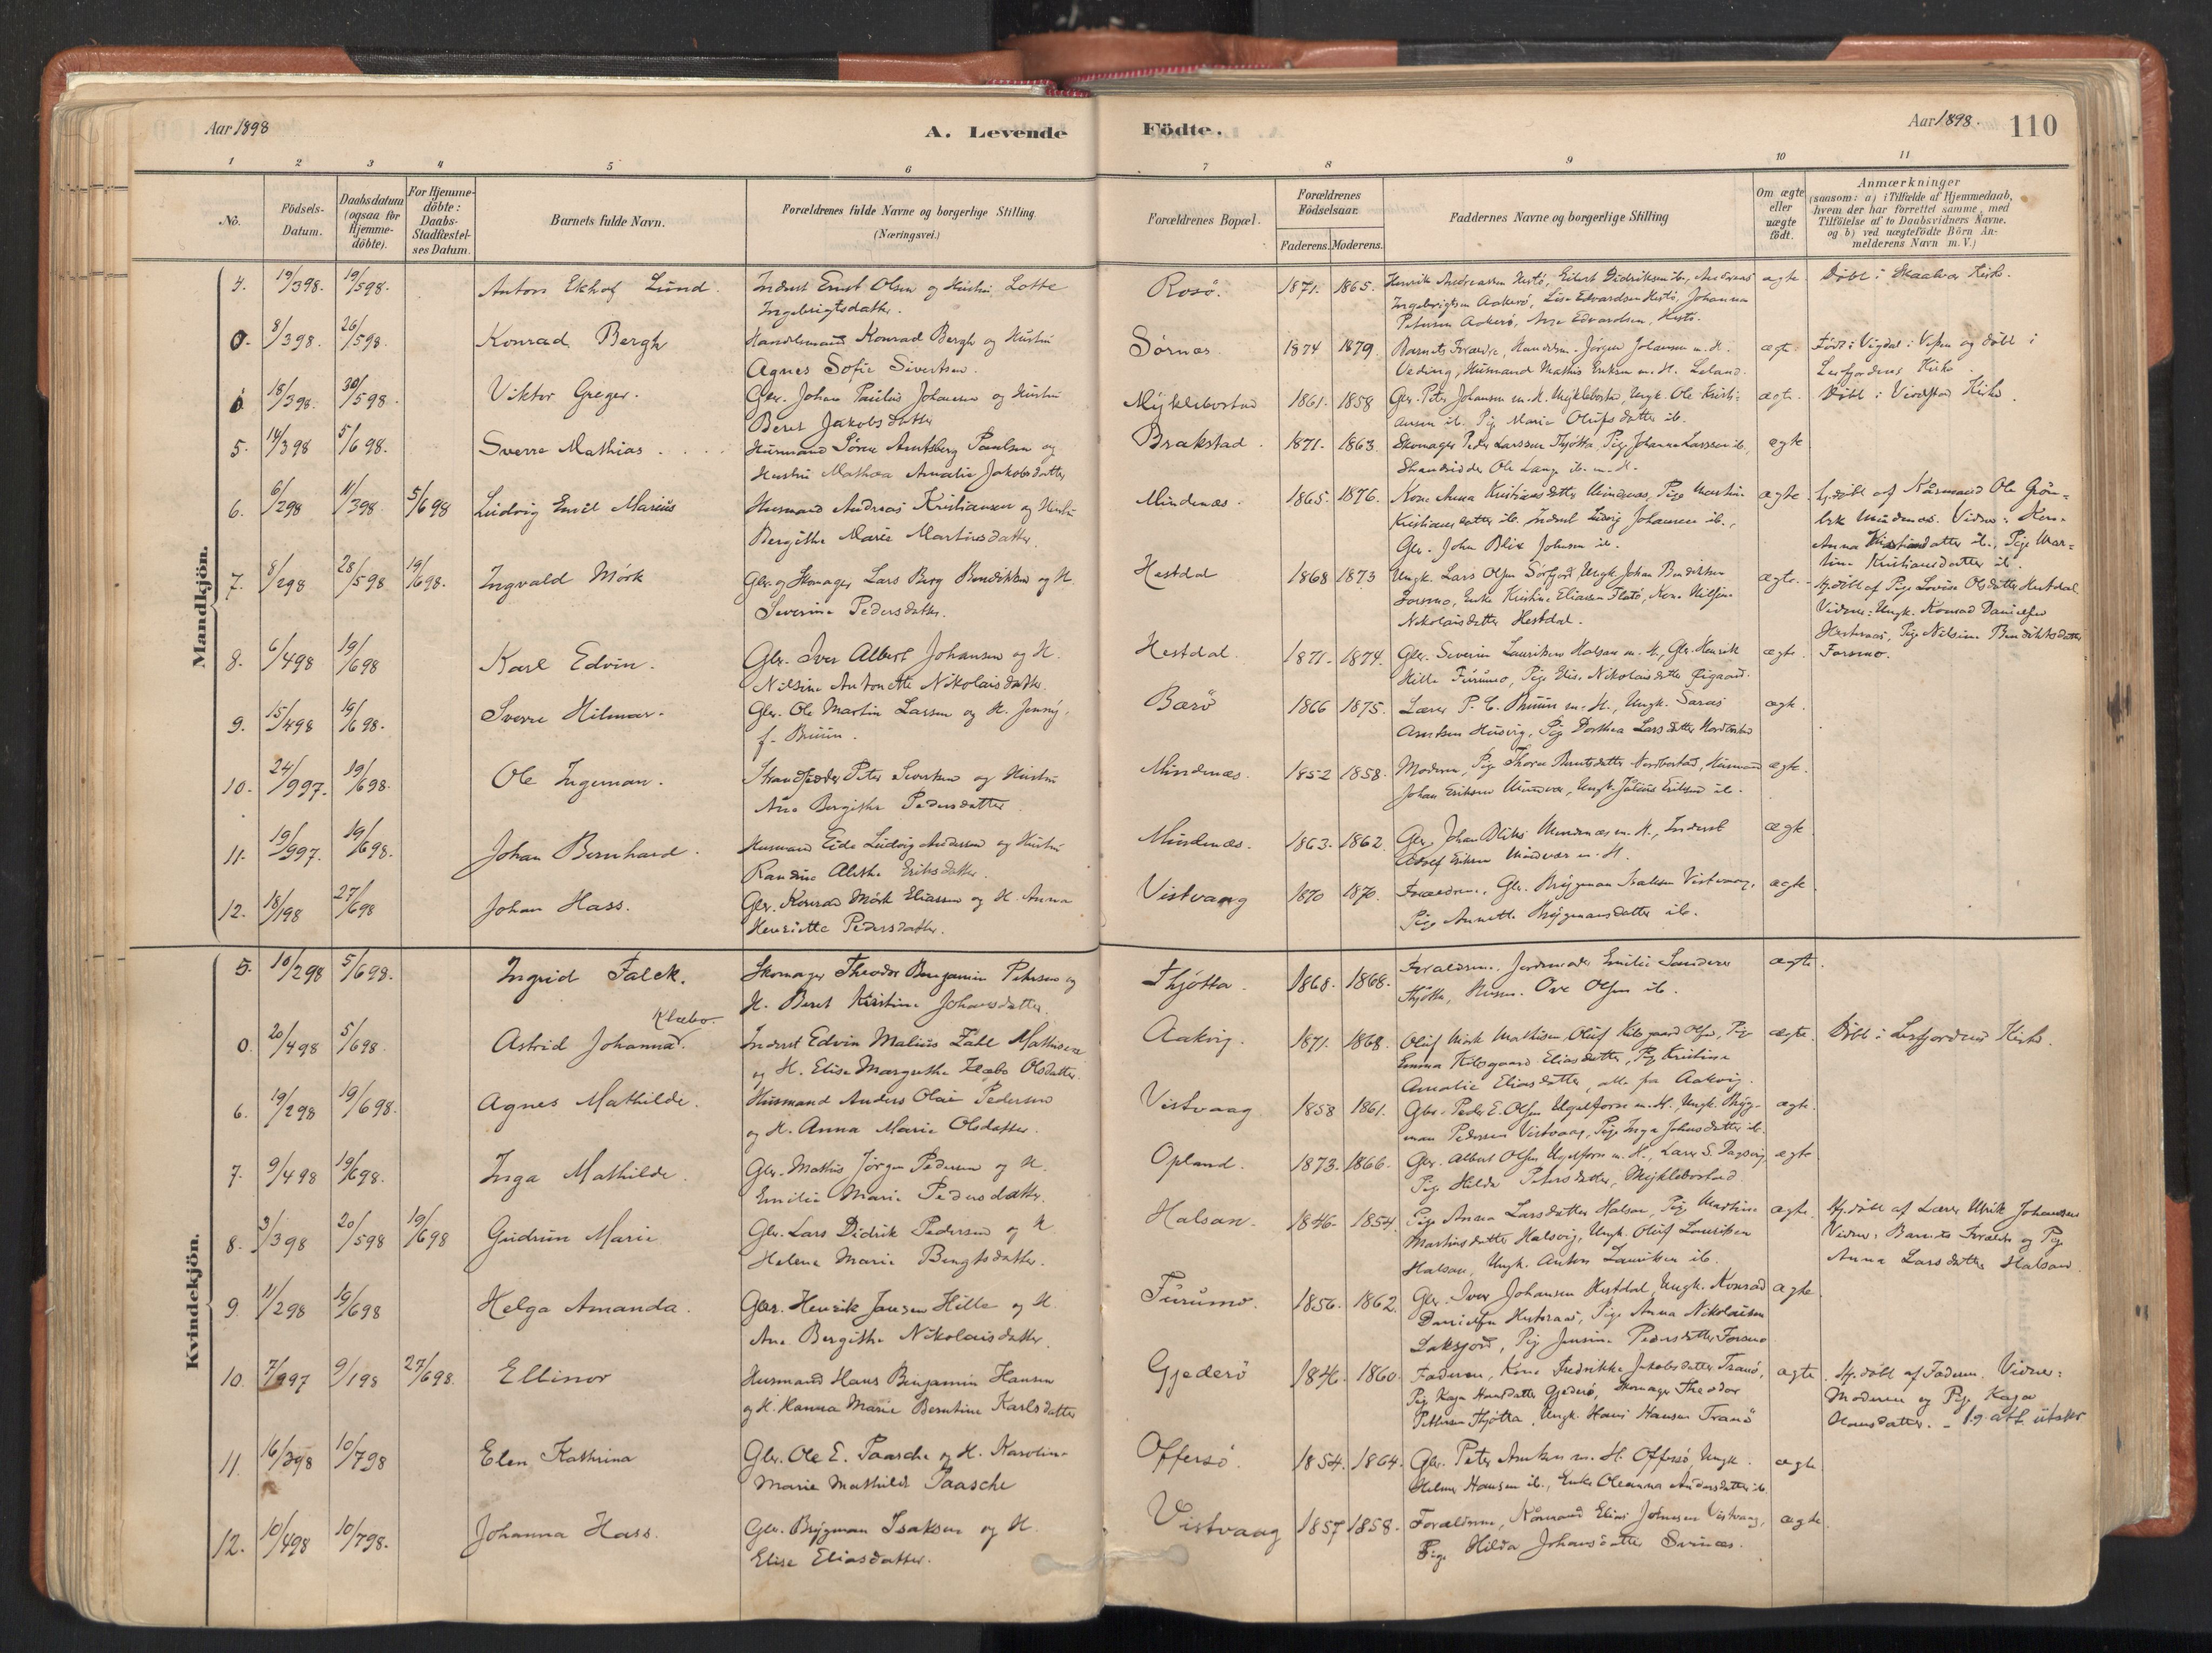 Aar 1898
A. Levende
Födte.
Aar 1898.
110
1 2 3 4 5 6 7 8 9 10 11
No.
Födsels-Datum.
Daabsdatum (ogsaa for Hjemme-döbte).
For Hjemme-döbte: Daabs-Stadfæstel-ses Datum.
Barnets fulde Navn.
Forældrenes fulde Navne og borgerlige Stilling
(Næringsvei.)
Forældrenes Bopæl.
Forældrenes Födselsaar.
Faderens. Moderens.
Faddernes Navne og borgerlige Stilling
Om ægte eller uægte födt.
Anmærkninger
(saasom: a) i Tilfælde af Hjemmedaab, hvem der har forrettet samme, med Tilföielse af to Daabsvidners Navne. og b) ved uægtefödte Börn An-melderens Navn m. V.)
Mandkjön.
4. 19/398. 19/598. Anton Ekhof Lund. Inderst Ernst Olsen og Hustru Lotte
Ingebrigtsdatter.
Rosö. 1871. 1865. Henrik Andreassen Hestö, Eilert Didriksen ib., Andreas
Ingebrigtsen Aakerö, Lise Edvardsen Hestö, Johanna
Petersen Aakerö, Edvardsen, Hestö.
ægte Döbt i Skaalvær Kirke.
0. 8/398. 26/598. Konrad Bergh Handelsmand Konrad Bergh og Hustru
Agnes Sofie Sivertsen.
Sörnæs 1874 1879. Barnets Forældre, Handelsm. Jörgen Johansen m. H.
Veding, Husmand Mathis Eriksen m. H. Leland.
ægte. Födt i Vigdal i Vefsen og döbt i
Leirfjordens Kirke.
0 18/398. 30/598. Viktor Greger. Gbr. Johan Paulus Johansen og Hustru
Beret Jakobsdatter
Myklebostad 1861. 1858 Gbr. Peter Johansen m. H. Myklebostad, Ungk. Ole Kristi-
ansen ib. Pige Marie Olufsdatter ib.
ægte. Döbt i Kirke.
5. 14/398 5/698. Sverre Mathias. Husmand Sören Arntsberg Paulsen og
Hustru Mathea Amalie Jakobsdatter
Brakstad. 1871. 1863. Skomager Peder Larssen Thjötta, Pige Johanna Larssen ib.
Strandsidder Ole Lange ib. m. H.
ægte
6. 6/298 11/398. 5/698 Ludvig Emil Marius Husmand Andreas Kristiansen og Hustru
Bergithe Marie Martinsdatter.
Mindnæs. 1865. 1876. Kone Anna Kristiansdatter Mindnæs, Pige Martine
Kristiansdatter ib. Inderst Ludvig Johansen ib.,
Gbr. John Blix Johnsen ib.
ægte Hj.döbt af Kårmand Ole Grön-
bek Mindnæs. Vidner: Kone
Anna Kristiansdatter ib., Pige Mar-
tine Kristiansdatter ib.
7. 8/298 28/598 19/698. Ingvald Mörk Gbr. og Skomager Lars Berg Bendiksen og H.
Severine Pedersdatter.
Hestdal 1868 1873 Ungk. Lars Olsen Sörfjord, Ungk. Johan Bendiksen
Forsmo, Enke Kristine Eliassen Flatö, Kone Nilsine
Nikolaisdatter Hestdal.
ægte. Hj.döbt af Pige Lovise Olsdatter Hestdal
Vidner: Ungk. Konrad Danielsen
Pige Nilsine Bendiktsdatter
Forsmo.
8. 6/498 19/698 Karl Edvin. Gbr. Iver Albert Johansen og H.
Nilsine Antonette Nikolaisdatter.
Hestdal. 1871. 1874. Gbr. Severin Lauritsen Halsan m. H., Gbr. Henrik
Hille Furumo, Pige Elis. Nikolaisdatter Øigaard.
ægte.
9. 15/498 19/698. Sverre Hilmar. Gbr. Ole Martin Larsen og H. Jenny,
f. Bruun.
Barö 1866 1875. Lærer P. C. Bruun m. H., Ungk. Saras
Arntsen Husvig, Pige Dorthea Larsdatter Nordbostad
ægte.
10. 24/997. 19/698. Ole Ingeman. Strandsidder Peter Sivertsen og Hustru
Ane Bergithe Pedersdatter
Mindnæs. 1852 1858. Moderen, Pige Thora Berntsdatter Nordbostad, Husmand
Johan Eriksen Mindvær, Ungk. Julius Eriksen ib.
ægte.
11. 19/997. 19/698. Johan Bernhard. Husmand Eide Ludvig Andersen og Hustru
Randine Alethe Eriksdatter.
Mindnæs. 1863. 1862. Gbr. Johan Blix Mindnæs m. H., Inderst
Adolf Eriksen Mindvær m. H.
ægte
12. 18/198 27/698 Johan Hass. Gbr. Konrad Mörk Eliassen og H. Anna
Henriette Pedersdatter.
Vistvaag 1870 1870. Forældrene, Gbr. Brygman Isaksen Vistvaag,
Pige Annette Brygmansdatter ib.
ægte
Kvindekjön.
5. 10/298 5/698. Ingrid Falck. Skomager Theodor Benjamin Petersen og
H. Beret Kristine Johansdatter.
Thjötta. 1868. 1868. Forældrene, Jordemoder Emilie Sandnes
Thjötta, Husm. Ove Olsen ib.
ægte.
0. 20/498 5/698. Astrid Johanna Klæbo. Inderst Edvin Malius Zahl Mathisen
og H. Elise Margrethe Klæbo Olsdatter.
Aakvig. 1871. 1868. Oluf Mörk Mathisen, Oluf Kilsgaard Olsen, Pige
Emma Kilsgaard Eliasdatter, Pige Kristine
Amalie Eliasdatter, alle fra Aakvig.
ægte. Döbt i Leirfjordens Kirke.
6. 19/298 19/698. Agnes Mathilde. Husmand Anders Olai Pedersen
og H. Anna Marie Olsdatter.
Vistvaag 1858 1861. Gbr. Peder E. Olsen m. H., Ungk. Bryg-
man Pedersen Vistvaag, Pige Inga Johansdatter ib.
ægte.
7. 9/498 19/698. Inga Mathilde. Gbr. Mathis Jörgen Pedersen og H.
Emilie Marie Pedersdatter.
Opland. 1873. 1866. Gbr. Albert Olsen m. H., Lærer S. Dagsvig,
Pige Hilda Petersdatter, Myklebostad.
ægte
8. 3/398 20/598 19/698 Gudrun Marie Gbr. Lars Didrik Pedersen og H
Helene Marie Bengtsdatter.
Halsan. 1846. 1854. Pige Anna Larsdatter Halsan, Pige Martine
Martinsdatter Halsvig, Ungk. Oluf Lauritsen
Halsan, Ungk. Anton Lauritsen ib.
ægte. Hj.döbt af Lærer Ulrik Johansen
Vidner: Barnets Forældre og Pige
Anna Larsdatter Halsan.
9. 11/298 19/698 Helga Amanda. Gbr. Henrik Jansen Hille og H.
Ane Bergithe Nikolaisdatter.
Furumo. 1856. 1862. Gbr. Iver Johansen Hestdal, Ungk. Konrad
Danielsen Pige Anna Nikolaisen
Laksfjord, Pige Jensine Pedersdatter Forsmo
ægte
10. 7/997 9/198 27/698. Ellinor Husmand Hans Benjamin Hansen
og H. Hanna Marie Berntine Karlsdatter
Gjæderö 1846. 1860. Faderen, Kone Fredrikke Jakobsdatter Tranö,
Pige Kaja Hansdatter Gjæderö, Skomager Theodor
Pettersen Thjötta, Ungk. Hans Hansen Tranö
ægte. Hj.döbt af Faderen. Vidner:
Moderen og Pige Kaja
Hansdatter. - 19 att. utskr
11. 16/398 10/798 Elen Kathrina Gbr. Ole E. Paasche og H. Karoline
Marie Mathilde Paasche
Offersö. 1854. 1864. Gbr. Peter Arntsen m. H. Offersö, Ungk.
Helmer Hansen ib., Enke Oleanna Andersdatter ib.
ægte
12. 10/498 10/798. Johanna Hass. Gbr. Brygman Isaksen og H.
Elise Eliasdatter.
Vistvaag 1857 1858. Forældrene, Kårmand Elias Johnsen Vistvaag,
Pige Hilda Johansdatter Svinæs.
ægte.